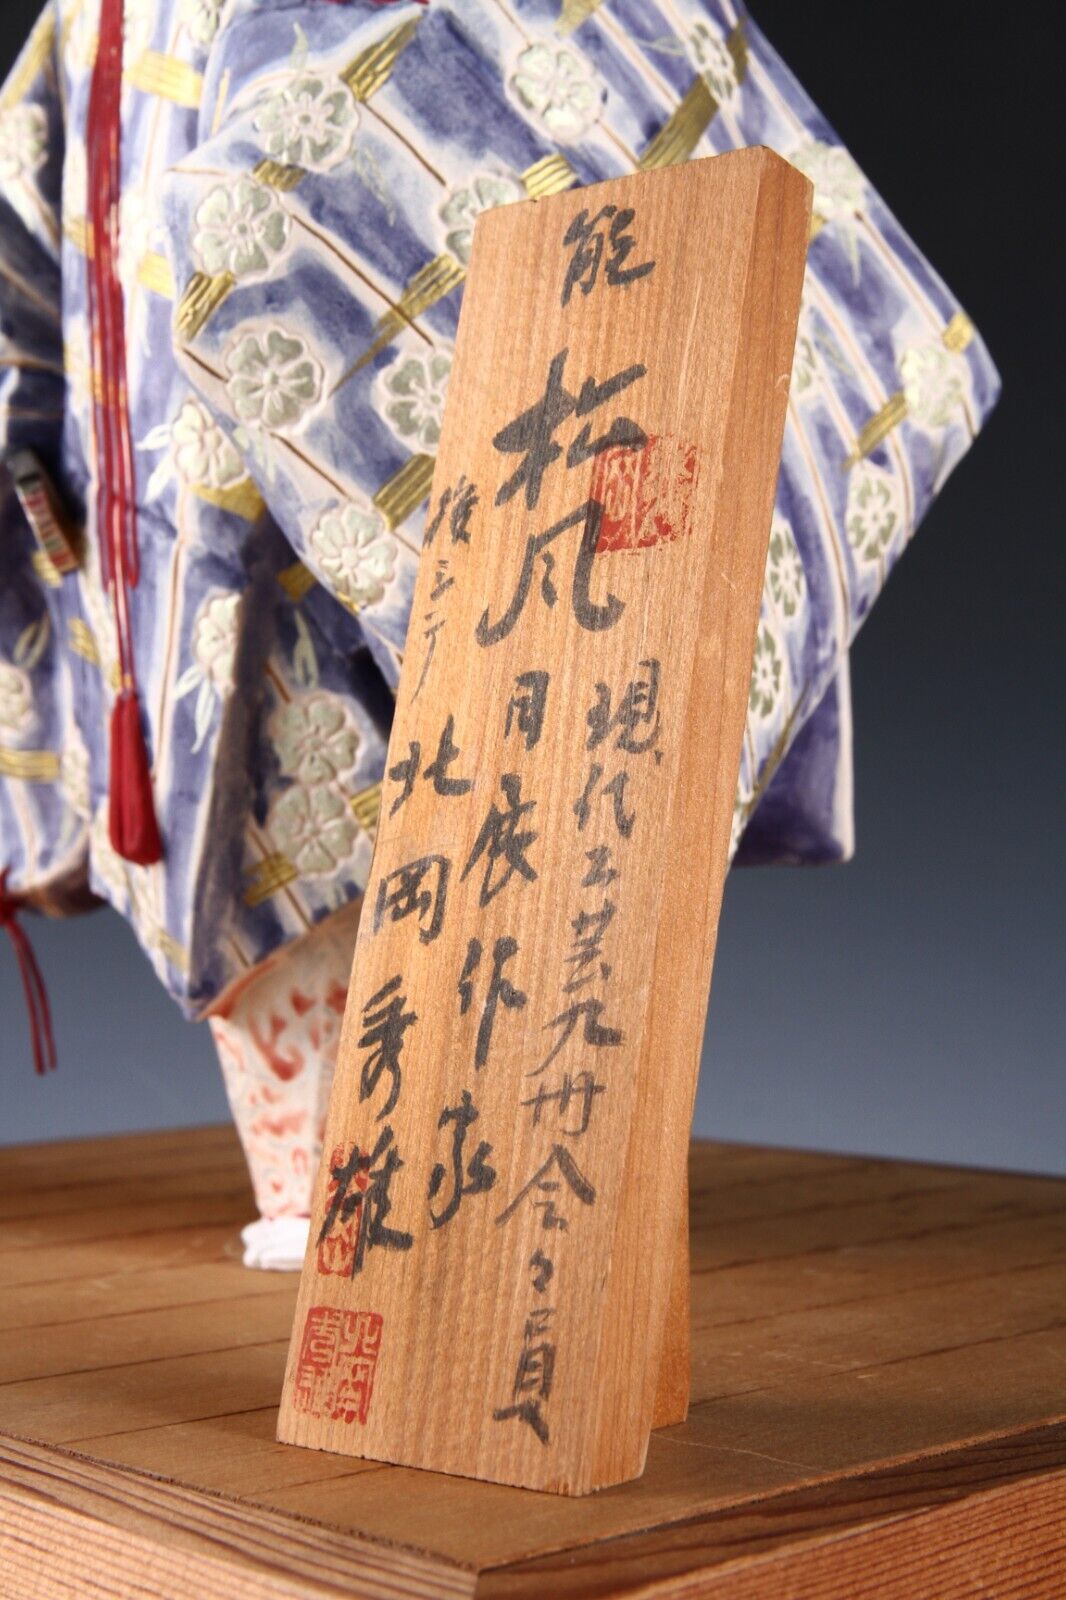 能
松風
後シテ
現代工芸九州会々員
日展作家
北岡秀雄